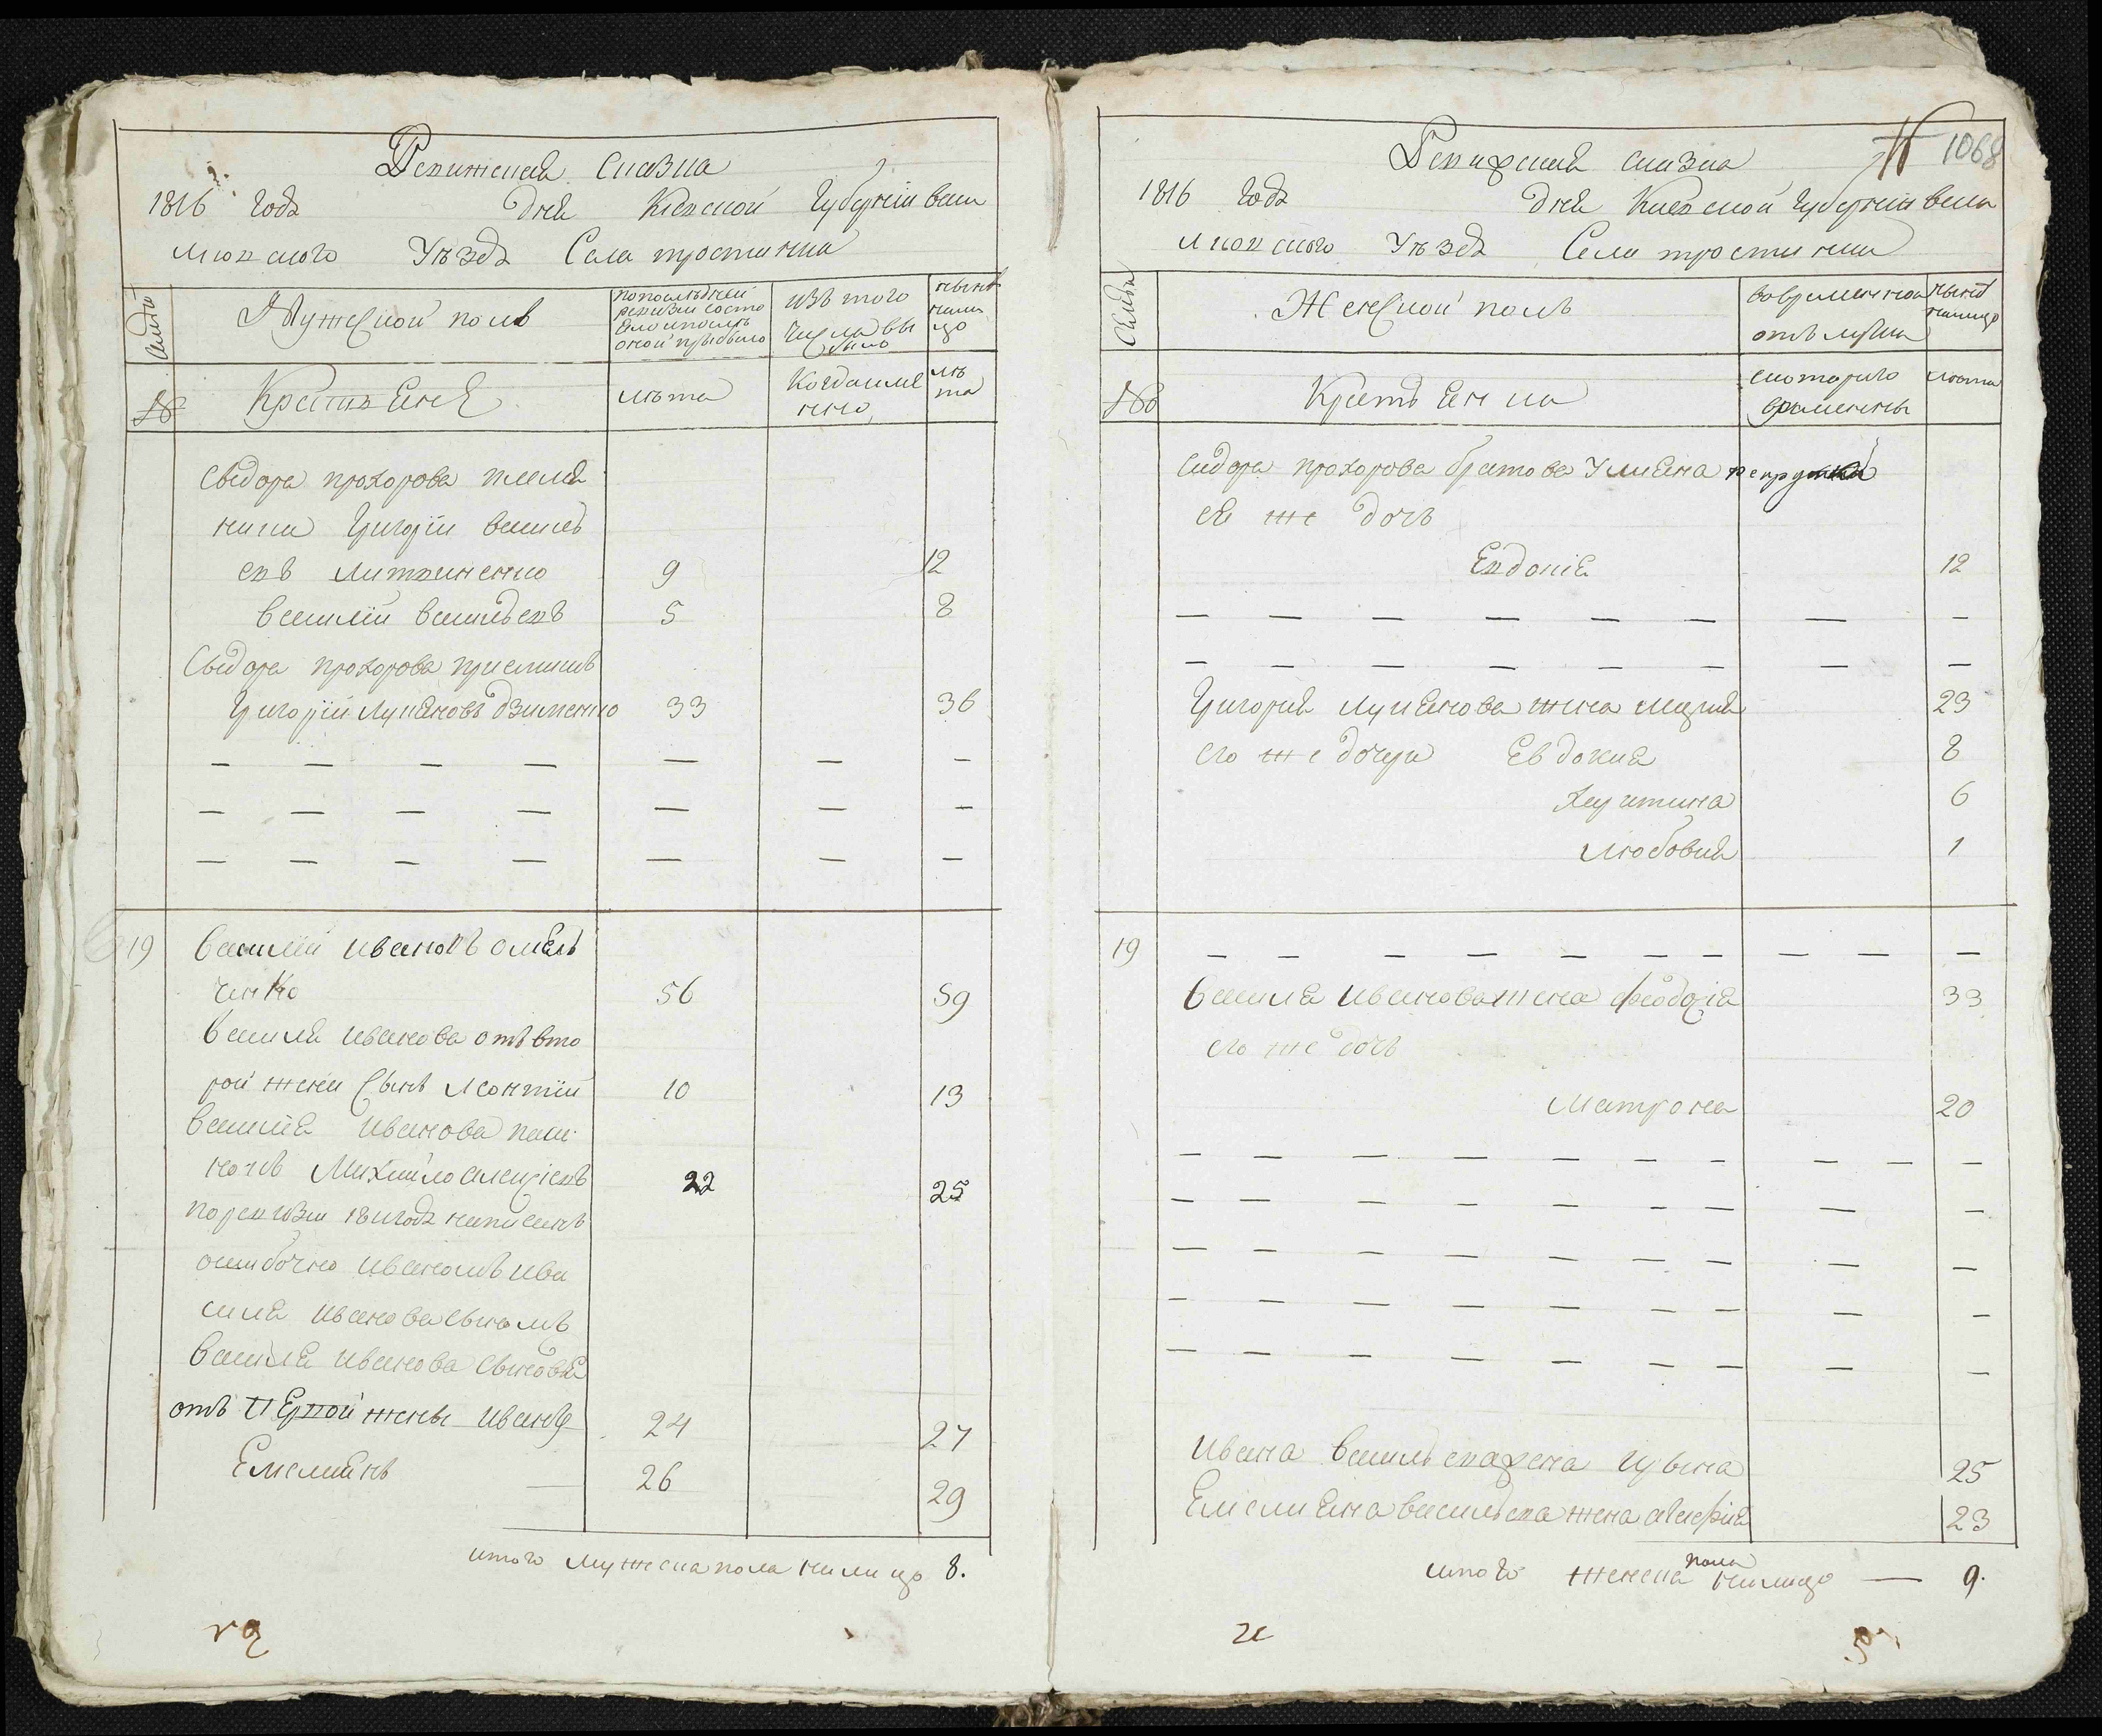 Ревижская сказка
1816 года дня Киевской Губерніи васи
лковского Уѣзда Села тростинки
Семьи
Мужеской полъ
попослѣдней
ревизіи состо
яло ипослѣ
оной прибыло
изъ того
числа вы
было
нынѣ
нали
цо
№
Крестьяне
лѣта
Когда име
нно,
лѣ
та
Сыдора прохорова племя
ники Григорій василь
евъ Литвиненко 9 12
василій васильевъ 5 8
Сыдора прохорова приемишъ
Григорій Лукяновъ дзименко 33 36
— — — — — — —
— — — — — — —
— — — — — — —
19 василій ивановъ омель
ченко 56 59
василя иванова отъ вто
рой жени сынъ леонтій 10 13
василія иванова паси
нокъ Михайло алексіевъ 22 25
поревизіи 1811 года написанъ
ошибочно иваномъ ива
силя иванова сыномъ
василя иванова сыновя
отъ первой жены иванъ 24 27
Емелиянъ 26 29
итого мужеска пола налицо 8.
Ревижская сказка 1068
1816 года дня Киевской Губерніи васи
лковского Уѣзда Села тростинки
Семьи
Женской полъ
вовременной
отълучки
нынѣ
налицо
№
Крестьянка
скоторого
времены
лѣта
сидора прохорова братова Улияна
ея же дочь
Евдокія 12
— — — — — — — —
— — — — — — — —
Григория лукянова жена мария 23
его же дочери Евдокия 8
Харитина 6
Любовия 1
19 — — — — — — — — — —
василя иванова жена феодосія 33
его же дочь
Матрона 20
— — — — — — — — — —
— — — — — — — — —
— — — — — — — — —
— — — — — — — — —
— — — — — — — — —
ивана василева жена ирына 25
Емелияна василева жена агафия 23
пола
итого женска налицо — 9.